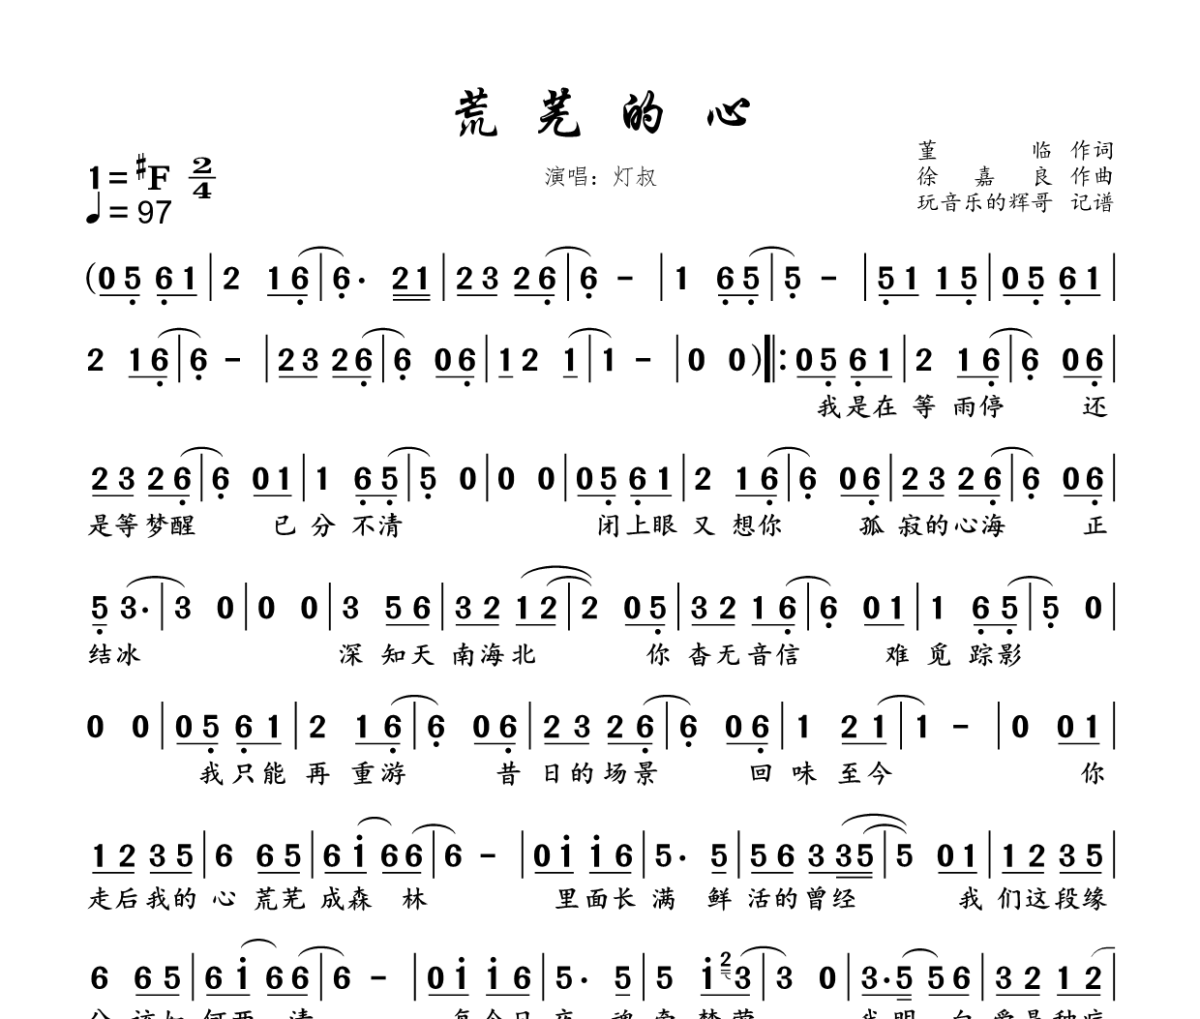 荒芜的心
演唱：灯叔
董临 作词
徐嘉良 作曲
玩音乐的辉哥 记谱
1=#F 2/4
♩=97
(05 61|2 16|6. 21|23 26|6 -|1 65|5 -|51 15|05 61|
2 16|6 -|23 26|6 06|12 1|1 -|0 0)‖:05 61|2 16|6 06|
我是在 等 雨停 还
23 26|6 01|1 65|5 0|0 0|05 61|2 16|6 06|23 26|6 06|
是等梦醒 已 分 不清 闭上眼 又 想你 孤 寂的心海 正
5 3.|3 0|0 0|3 56|32 12|2 05|32 16|6 01|1 65|5 0|
结冰 深 知天 南海北 你 杳无音信 难 觅 踪影
0 0|05 61|2 16|6 06|23 26|6 06|1 21|1 -|0 01|
我只能 再 重游 昔 日的场景 回 味 至今 你
12 35|6 65|6i 66|6 -|0i i6|5. 5|56 335|5 01|12 35|
走后我的 心 荒芜 成森 林 里面长 满 鲜 活的曾经 我 们这段缘
6 65|6i 66|6 -|0i i6|5. 5|5 i23|3 0|3.5 56|32 12|